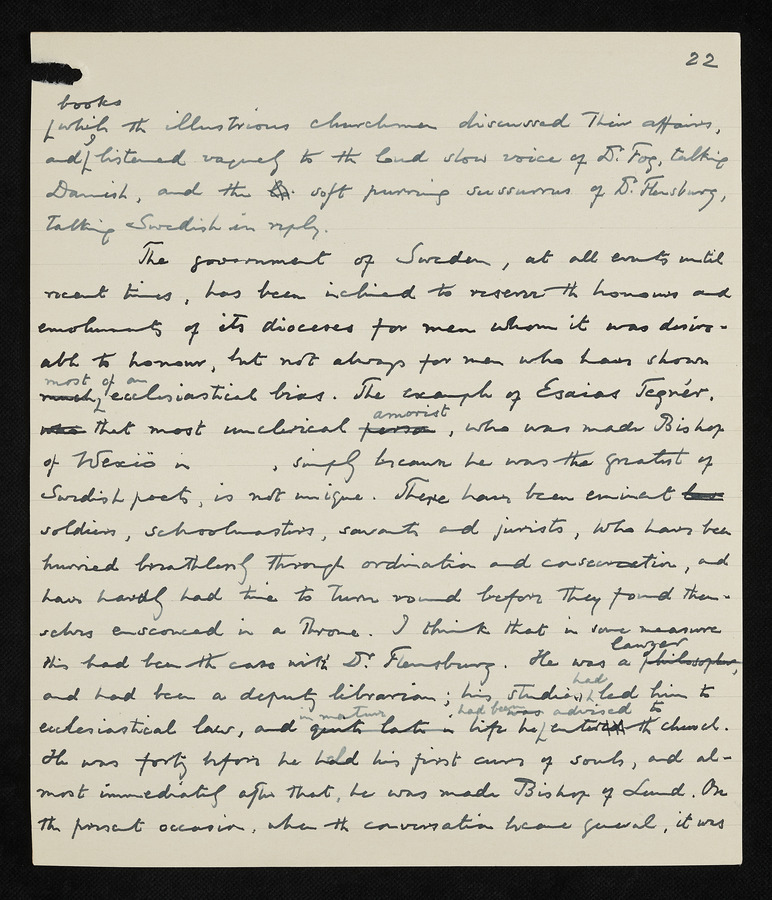 22
books
which the illustrious churchmen discussed their affairs,
and listened vaguely to the loud slow voice of Dr. Fog, talking
Danish, and the soft purring sussurrus of Dr. Flensburg,
talking Swedish in reply.
The government of Sweden, at all events until
recent times, has been inclined to reserve the honours and
emoluments of its dioceses for men whom it was desir-
able to honour, but not always for men who have shown
most of an
much ecclesiastical bias. The example of Esaias Tegnér,
amorist
who that most unclerical person, who was made Bishop
of Wexiö in , simply because he was the greatest of
Swedish poets, is not unique. There have been eminent
soldiers, schoolmasters, savants and jurists, who have been
hurried breathlessly through ordination and consecration, and
have hardly had time to turn round before they found them-
selves ensconced in a Throne. I think that in some measure
lawyer
this had been the case with Dr. Flensburg. He was a philosopher,
had
and had been a deputy librarian; his studies led him to
in mature had been was advised to
ecclesiastical law, and quite late in life he entered the church.
He was forty before he held his first cure of souls, and al-
most immediately after that, he was made Bishop of Lund. On
the present occasion, when the conversation became general, it was